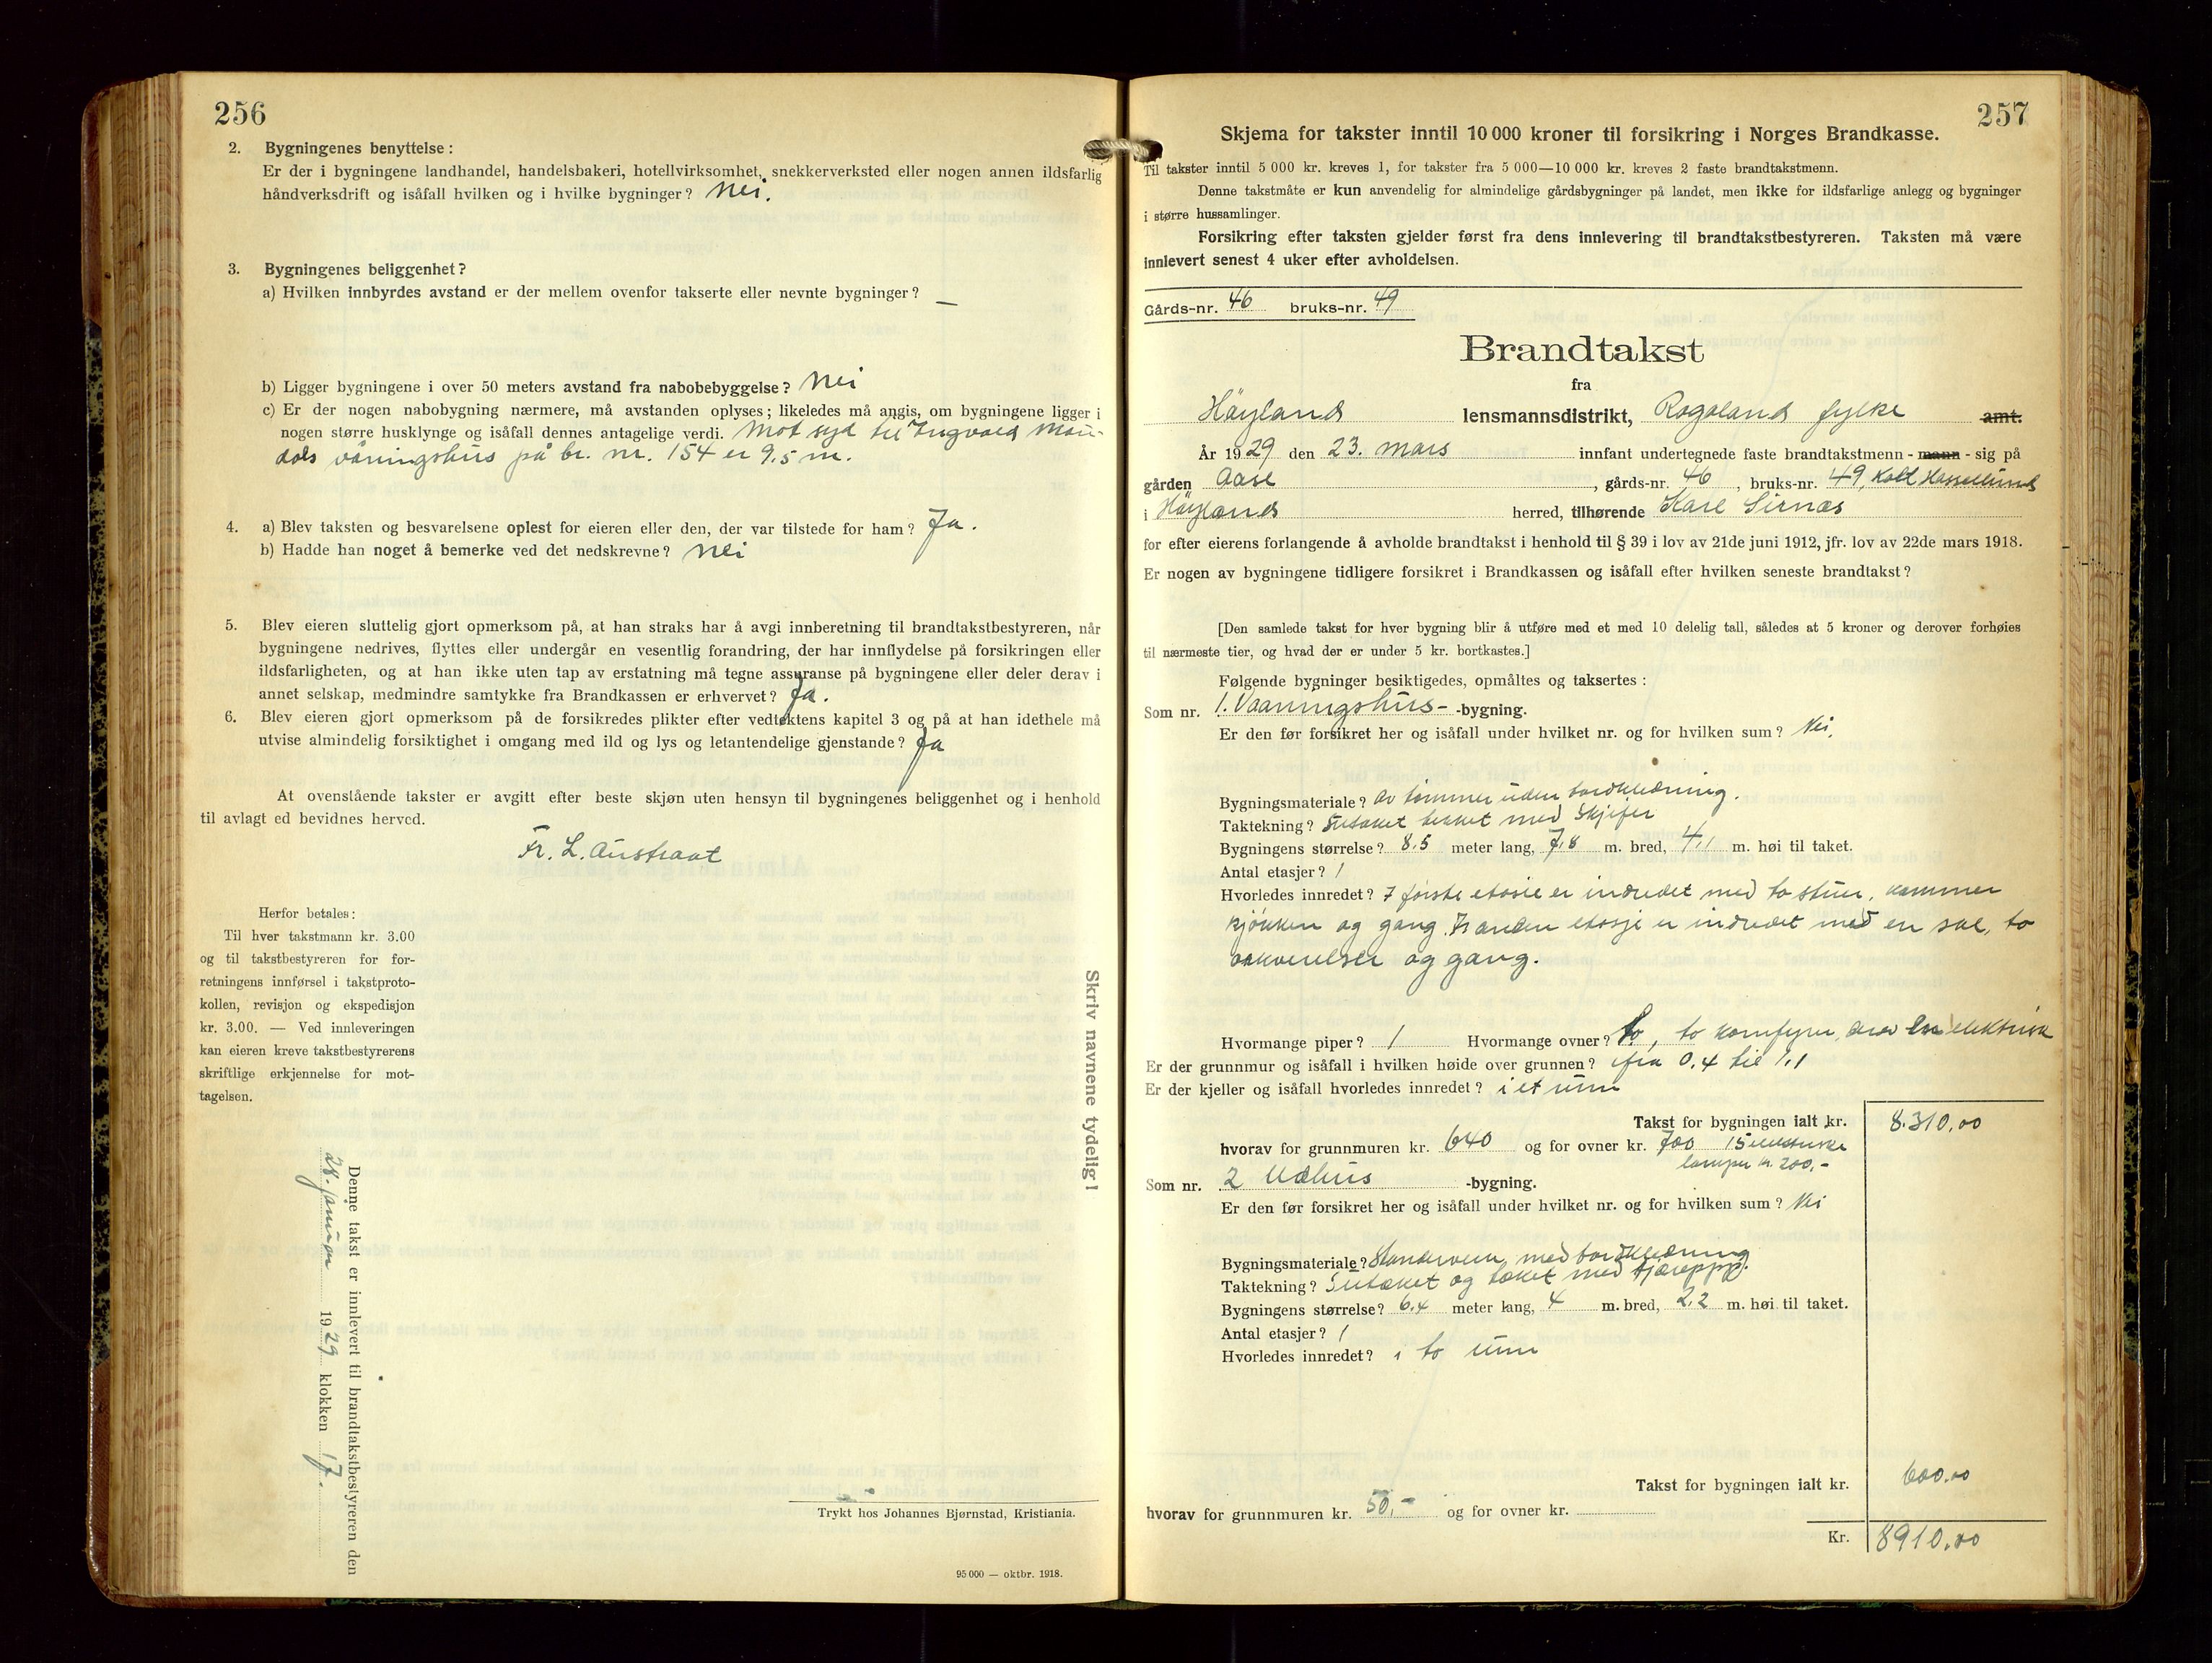 256
2. Bygningenes benyttelse :
Er der i bygningene landhandel, handelsbakeri, hotellvirksomhet, snekkerverksted eller nogen annen ildsfarlig
håndverksdrift og isåfall hvilken og i hvilke bygninger? nei.
3. Bygningenes beliggenhet?
a) Hvilken innbyrdes avstand er der mellem ovenfor takserte eller nevnte bygninger? —
b) Ligger bygningene i over 50 meters avstand fra nabobebyggelse? nei
c) Er der nogen nabobygning nærmere, må avstanden oplyses; likeledes må angis, om bygningene ligger i
nogen større husklynge og isåfall dennes antagelige verdi. Mot syd til Ingvald Mau-
dals våningshus på br. nr. 154 er 9,5 m.
4. a) Blev taksten og besvarelsene oplest for eieren eller den, der var tilstede for ham? Ja.
b) Hadde han noget å bemerke ved det nedskrevne? nei
5. Blev eieren sluttelig gjort opmerksom på, at han straks har å avgi innberetning til brandtakstbestyreren, når
bygningene nedrives, flyttes eller undergår en vesentlig forandring, der har innflydelse på forsikringen eller
ildsfarligheten, og at han ikke uten tap av erstatning må tegne assuranse på bygningene eller deler derav i
annet selskap, medmindre samtykke fra Brandkassen er erhvervet? Ja.
6. Blev eieren gjort opmerksom på de forsikredes plikter efter vedtektens kapitel 3 og på at han idethele må
utvise almindelig forsiktighet i omgang med ild og lys og letantendelige gjenstande? Ja
At ovenstående takster er avgitt efter beste skjøn uten hensyn til bygningenes beliggenhet og i henhold
til avlagt ed bevidnes herved.
Fr. L. Austraat
Herfor betales:
Til hver takstmann kr. 3.00
og til takstbestyreren for for-
retningens innførsel i takstproto-
kollen, revisjon og ekspedisjon
kr. 3.00. — Ved innleveringen
kan eieren kreve takstbestyrerens
skriftlige erkjennelse for mot-
tagelsen.
Skriv navnene tydelig!
Denne takst er innlevert til brandtakstbestyreren den
28. januar 1929 klokken 17.
Trykt hos Johannes Bjørnstad, Kristiania.
95 000 — oktbr. 1918.
257
Skjema for takster inntil 10 000 kroner til forsikring i Norges Brandkasse.
Til takster inntil 5 000 kr. kreves 1, for takster fra 5 000—10 000 kr. kreves 2 faste brandtakstmenn.
Denne takstmåte er kun anvendelig for almindelige gårdsbygninger på landet, men ikke for ildsfarlige anlegg og bygninger
i større hussamlinger.
Forsikring efter taksten gjelder først fra dens innlevering til brandtakstbestyreren. Taksten må være
innlevert senest 4 uker efter avholdelsen.
Gårds-nr. 46 bruks-nr. 49
Brandtakst
fra
Höyland lensmannsdistrikt, Rogaland fylke amt.
År 1929 den 23. mars innfant undertegnede faste brandtakstmenn - mann - sig på
gården Aase, gårds-nr. 46, bruks-nr. 49, kald
i Höyland herred, tilhørende Karl Sirnæs
for efter eierens forlangende å avholde brandtakst i henhold til § 39 i lov av 21de juni 1912, jfr. lov av 22de mars 1918.
Er nogen av bygningene tidligere forsikret i Brandkassen og isåfall efter hvilken seneste brandtakst?
[Den samlede takst for hver bygning blir å utføre med et med 10 delelig tall, således at 5 kroner og derover forhøies
til nærmeste tier, og hvad der er under 5 kr. bortkastes.]
Følgende bygninger besiktigedes, opmåltes og taksertes :
Som nr. 1. Vaaningshus- -bygning.
Er den før forsikret her og isåfall under hvilket nr. og for hvilken sum? Nei.
Bygningsmateriale? av tømmer uden bordklædning.
Taktekning? Sutaket tekket med Skjifer
Bygningens størrelse? 8,5 meter lang, 7,8 m. bred, 4,1 m. høi til taket.
Antal etasjer? 1
Hvorledes innredet? I første etasje er indredet med to stuer, kammer
kjökken og gang. I anden etasje er indredet med en sal, to
værelser og gang.
Hvormange piper? 1 Hvormange ovner? to, to komfyrer, derav en elektrisk
Er der grunnmur og isåfall i hvilken høide over grunnen? fra 0,4 til 1,1
Er der kjeller og isåfall hvorledes innredet? i et rum
Takst for bygningen ialt kr. 8.310,00
hvorav for grunnmuren kr. 640 og for ovner kr. 700 15 elektriske
lamper kr. 200,-
Som nr. 2 Udhus -bygning.
Er den før forsikret her og isåfall under hvilket nr. og for hvilken sum? Nei
Bygningsmateriale? med bordklædning
Taktekning? Sutaket og tæket med tjærepapp.
Bygningens størrelse? 6,4 meter lang, 4 m. bred, 2,2 m. høi til taket.
Antal etasjer? 1
Hvorledes innredet? i to rum
Takst for bygningen ialt kr. 600,00
hvorav for grunnmuren kr. 50,- og for ovner kr.
Kr. 8910,00